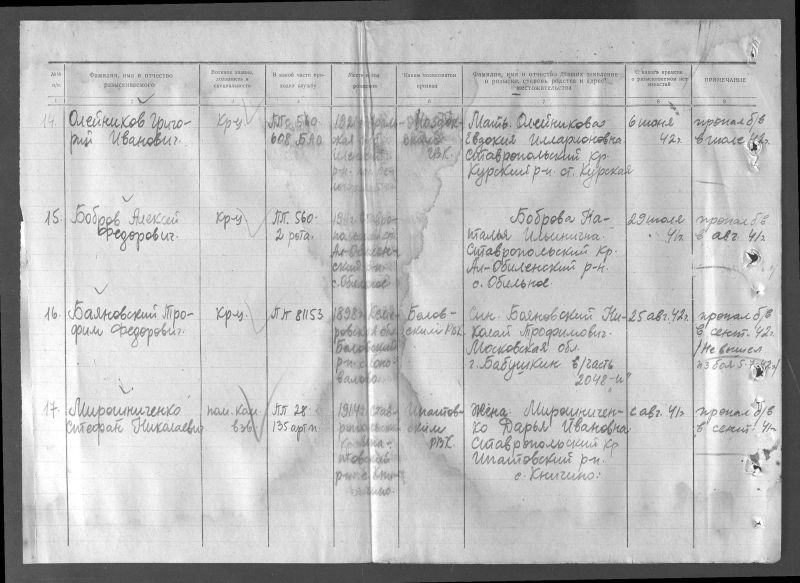 №№ п/п.
Фамилия, имя и отчество
разыскиваемого
Военное звание,
должность и
специальность
В какой части про-
ходил службу
Место и год
рождения
Каким военкоматом
призван
Фамилия, имя и отчество давших заявление
о розыске, степень родства и адрес
местожительства
С какого времени
о разыскиваемом нет
известий
ПРИМЕЧАНИЕ
1 2 3 4 5 6 7 8 9
14. Олейников Григо-
рий Иванович.
Кр-ц
ППс 560
608 БАО
Моздок-
ский
РВК.
Мать. Олейникова
Евдокия Илларионовна
Ставропольский кр.
Курский р-н. ст. Курская
6 июня
42г.
пропал б/в
в июле 42г.
15. Бобров Алексей
Федорович.
Кр-ц
ПП. 560.
2 рота.
Боброва На-
талья Ильинична.
Ставропольский кр.
Ал-Обиленский р-н
с. Обильное.
29 июля
41г.
пропал б/в
в авг. 41г.
16. Баяновский Тро-
фим Федорович.
Кр-ц.
ПП 81153
1898г.
Болов-
ский РВК.
Сын. Баяновский Ни-
колай Трофимович.
Московская обл.
г. Бабушкин в/часть
2048-"и"
25 авг. 42г.
пропал б/в
в сент. 42г.
/Не вышел
из боя
17. Мирошниченко
Стефан Николаевич
пом. ком
взв.
ПП 28
135 арт п.
1914г. Став-
ропольский
кр. Ипа-
товский
р-н
Ипатов-
ским
РВК.
Жена Мирошничен-
ко Дарья Ивановна
Ставропольский кр
Ипатовский р-н.
с. Кничино.
с авг. 41г.
пропал б/в
в сент. 41г.